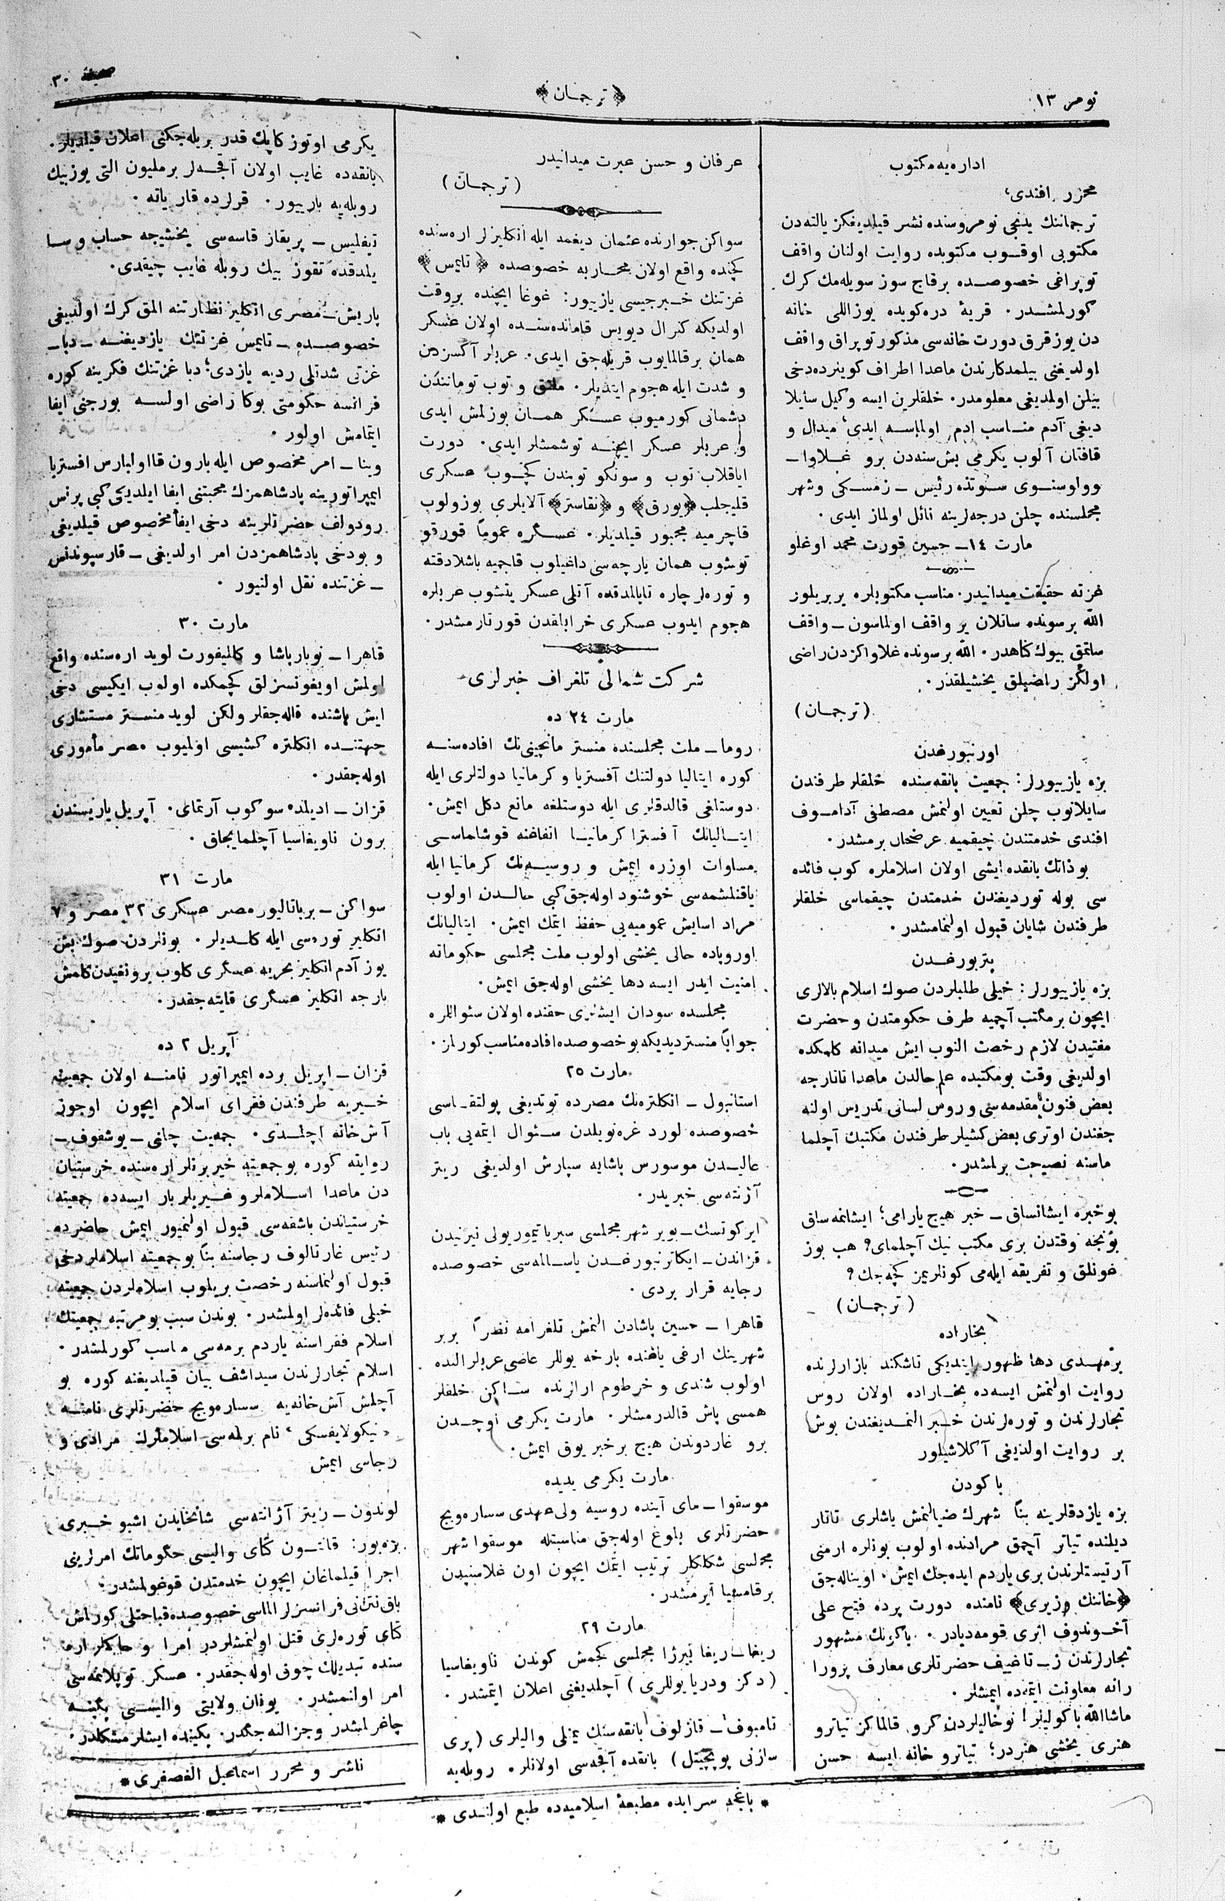 نومر ١٣
﴿ ترجمان ﴾
صحيفه ٣٠
اداره‌يه مكتوب
محرر افندى،
ترجمانك يدنجى نومروسنده نشر قيلديفكز يالته‌دن
مكتوبى اوقوب مكتوبده روايت اولنان واقف
توپراغى خصوصده برقاج سوز سويله‌مك كرك
كورلمشدر. قريۀ دره‌كويده يوزاللى خانه
دن يوزقرق دورت خانه‌سى مذكور توپراق واقف
اولديغنى بيلمدكلرندن ماعدا اطراف كويلرده‌دخى
بيلن اولمديغى معلومدر. خلقلرين ايسه وكيل سايلا
ديغى آدم مناسب ادم اولماسه ايدى، ميدال و
قافتان آلوب يكرمى بش سنه‌دن برو غلاوا ـ
وولوسنوى سوتده رئيس ـ زمسكى وشهر
مجلسنده چلن درجه‌لرينه نائل اولماز ايدى.
مارت ١٤ ـ حسين قورت محمد اوغلو
غزته حقيقت ميدانيدر. مناسب مكتوبلره ير بريلور
الله برسونده ساتلان ير واقف اولماسون ـ واقف
ساتمق بيوك كناهدر. الله برسونده غلاواكزدن راضى
اولكز راضيلق يخشيلقدر.
(ترجمان)
اورنبورغدن
بزه يازييورلر: جمعيت بانقه‌سنده خلقلر طرفندن
سايلانوب چلن تعيين اولنمش مصطفى آدامـوف
افندى خدمتندن چيقميه عرضحال برمشدر.
بو ذاتك بانقده ايشى اولان اسلاملره كوب فائده
سى بوله تورديغندن خدمتدن چيقماسى خلقلر
طرفندن شايان قبول اولنمامشدر.
پتربورغدن
بزه يازييورلر: خيلى طلبلردن صوك اسلام بالالرى
ايچون بر مكتب آچميه طرف حكومتدن و حضرت
مفتيدن لازم رخصت النوب ايش ميدانه كلمكده
اولديغى وقت بومكتبده علم حالدن ماعدا تاتارجه
بعض فنون مقدمه‌سى و روس لسانى تدريس اولنه
جغندن اوترى بعض كشيلر طرفندن مكتبك آچلما
ماسنه نصيحت برلمشدر.
بوخبره ايشانساق ـ خبر هيچ يارامى؛ ايشانمه‌ساق
بونجه وقتدن برى مكتب نيك آچلماى؟ هب بوز
غونلق و تفريقه ايله‌مى كونلريمز كچه‌جك؟
(ترجمان)
بخاراده
برمهدى دها ظهور ايتديكى تاشكند بازارلرنده
روايت اولنمش ايسه‌ده بخاراده اولان روس
تجارلرندن و توره‌لرندن خبر النمديغندن بوش
بر روايت اولديغى آكلاشيلور
باكودن
بزه يازدقلرينه بناً شهرك ضيالنمش ياشلرى تاتار
ديلنده تياتر آچمق مرادنده اولوب بونلره ارمنى
آرتيستلرندن برى ياردم ايده‌جك ايمش. اويناله‌جق
﴿خاننك وزيرى﴾ نامنده دورت پرده فتح على
آخوندوف اثرى قومه‌ديادر. باكونك مشهور
تجارلرندن ز ـ تاغييف حضرتلرى معارف پرورا
رانه معاونت ايتمده ايمشلر.
ماشاالله باكولينلر! نوخاليلردن كرو قالماكز تياترو
هنرى يخشى هنردر؛ تياترو خانه ايسه حسن
عرفان و حسن عبرت ميدانيدر
(ترجمان)
سواكن جوارنده عثمان ديغمه ايله انكليزلر اره‌سنده
كچنده واقع اولان محاربه خصوصده ﴿تايمس﴾
غزتنك خبرجيسى يازييور: غوغا ايچنده بروقت
اولديكه كنرال ديويس قامانده‌سنده اولان عسكر
همان برقالمايوب قريله‌جق ايدى. عربلر آكسزدن
و شدت ايله هجوم ايتديلر. ملتق و توب توماننندن
دشمانى كورميوب عسكر همان بوزلمش ايدى
و عربلر عسكر ايچنه توشمشلر ايدى. دورت
اياقلاب توب و سونكو توبندن كچوب عسكرى
قليچلب ﴿يورق﴾ و ﴿نقاستر﴾ آلايلرى بوزولوب
قاچرميه مجبور قيلديلر. عسكره عموماً قورقو
توشوب همان پارچه‌سى داغيلوب قاچميه باشلادقته
و توره‌لر چاره تاپالمدقده آتلى عسكر يتشوب عربلره
هجوم ايدوب عسكرى خرابلقدن قورتارمشدر.
شركت شمالى تلغراف خبرلرى
مارت ٢٤ ده
روما ـ ملت مجلسنده منستر مانچينى‌نك افاده‌سنه
كوره ايتاليا دولتنك آفستريا و كرمانيا دولتلرى ايله
دوستلغى قالدقلرى ايله دوستلغه مانع دكل ايمش.
ايتاليانك آفسترا كرمانيا اتفاغنه قوشلماسى
مساوات اوزره ايمش و روسيه‌نك كرمانيا ايله
ياقنلشمه‌سى خوشنود اوله‌جق كبى حالدن اولوب
مراد اسايش عموميه‌يى حفظ ايتمك ايمش. ايتاليانك
اوروپاده حالى يخشى اولوب ملت مجلسى حكوماته
امنيت ايدر ايسه دها يخشى اوله‌جق ايمش.
مجلسده سودان ايشلرى حقنده اولان سئواللره
جواباً منستر ديديكه بو خصوصده افاده مناسب كورلز.
مارت ٢٥
استانبول ـ انكلتره‌نك مصرده توتديغى پولتقاسى
خصوصده لورد غره‌نويلدن سئوال ايتمه‌يى باب
عاليدن موسورس پاشايه سپارش اولديغى ريتر
آژنته‌سى خبريدر.
ايركوتسك ـ بوير شهر مجلسى سبريا تيموريولى نيژنيدن
قزاندن ـ ايكاترنبورغدن ياسالمه‌سى خصوصده
رجايه قرار بردى.
قاهرا ـ حسين پاشادن النمش تلغرامه نظراً بربر
شهرينك ارغى ياغنده بارخه يوللر عاصى عربلر النده
اولوب شندى و خرطوم ارالرنده ساكن خلقلر
همسى پاش قالدرمشلر. مارت يكرمى اوچدن
برو غاردوندن هيچ برخبر يوق ايمش.
مارت يكرمى يديده
موسقوا ـ ماى آينده روسيه ولى عهدى سساره‌ويچ
حضرتلرى بلوغ اوله‌جق مناسبتله موسقوا شهر
مجلسى شنكلكلر ترتيب ايتمك ايچون اون غلاسنيدن
برقاميسيا آيرمشدر.
مارت ٢٩
ريغا ـ ريغا بيرژا مجلسى كچمش كوندن ناويغاسيا
(دكز و دريا يوللرى) آچلديغنى اعلان ايتمشدر.
تامبوف ـ قازلوف بانقه‌سنك يمنلى واليلرى (پرى
سازنى پوپچيتل) بانقده آقچه‌سى اولانلر. روبله‌يه
يكرمى اوتوز كاپك قدر بريله‌جكنى اعلان قيلديلر.
بانقه‌ده غايب اولان آقچه‌لر برمليون التى يوز بيك
روبله‌يه باريبور. قرلرده قار ياته.
تيفليس ـ پريقاز قاسه‌سى يخشيجه حساب و سا
يلدقده تقوز بيك روبله غايب چيقدى.
پاريش ـ مصرى انكليز نظارتنه المق كرك اولديغى
خصوصده ـ تايمس غزتنك يازديغنه ـ دبا ـ
غزتى شدتلى رديه يازدى؛ دبا غزتنك فكرينه كوره
فرانسه حكومتى بوكا راضى اولسه بورجنى ايفا
ايتمامش اولور.
وينا ـ امر مخصوص ايله بارون قااولبارس افستريا
ايمپراتورينه پادشاهمزك محبتنى ايفا ايلديكى كبى پرنس
رودولف حضرتلرينه دخى ايفأ مخصوص قيلديغى
و بودخى پادشاهمزدن امر اولديغى ـ قارسپوندنس
ـ غزتنده نقل اولنيور.
مارت ٣٠
قاهرا ـ نوبارپاشا و كاليفورت لويد اره‌سنده واقع
اولمش اويغونسزلق كچمكده اولوب ايكيسى دخى
ايش باشنده قاله‌جقلر ولكن لويد منستر مستشارى
جهتنده انكلتره كشيسى اولميوب مصر مأمورى
اوله‌جقدر.
قزان ـ اديلده سو كوب آرتماى. آپريل ياريسندن
برون ناويغاسيا آچلمايجاق.
مارت ٣١
سواكن ـ برباتاليور مصر عسكرى ٣٢ مصر و ٧
انكليز توره‌سى ايله كلديلر. بونلردن صوك بش
يوز آدم انكليز بحريه عسكرى كلوب برونغيدن كلمش
بارجه انكليز عسكرى قايته‌جقدر.
آپريل ٢ ده
قزان ـ اپريل برده ايمپراتور نامنه اولان جمعيت
خيريه طرفندن فقراى اسلام ايچون اوجوز
آش خانه آچلدى. جمعيت چلنى ـ يوشقوف ـ
روايته كوره بو جمعيته خير برنلر اره‌سنده خرستيان
دن ماعدا اسلاملر و غيريلر بار ايسه‌ده جمعيته
خرستياندن باشقه‌سى قبول اولنميور ايمش حاضرده
رئيس غارتالوف رجاسنه بناً بو جمعيته اسلاملر دخى
قبول اولنماسنه رخصت بريلوب اسلاملردن جمعيته
خيلى فائده‌لر اولمشدر. بوندن سبب بو مرتبه جمعيتك
اسلام فقراسنه ياردم برمه‌سى مناسب كورلمشدر.
اسلام تجارلرندن سيداشف بيان قيلديغنه كوره بو
آچلمش آش خانه‌يه سساره‌ويچ حضرتلرى نامنه
«نيكولايفسكى» نام برلمه‌سى اسلاملرك مرادى و
رجاسى ايمش
لوندون ـ ريتر آژانته‌سى شانخايدن اشبو خبرى
بزه‌بور: قانتون كتاى واليسى حكوماتك امرلرينى
اجرا قيلماغان ايچون خدمتدن قوغولمشدر.
باق نتانى فرانسزلر الماسى خصوصده قباحتلى كورلمش
كتاى توره‌لرى قتل اولنمشلردر امرا و حاكملر اره
سنده تبديلك چوق اوله‌جقدر. عسكر توپلانمه‌سى
امر اولنمشدر. يونان ولايتى واليسى پكينه
چاغرلمشدر و جزالنه‌جكدر. پكينده ايشلر مشكلدر.
ناشر و محرر اسماعيل الغصفرى*
* باغچه سرايده مطبعۀ اسلاميه‌ده طبع اولندى *